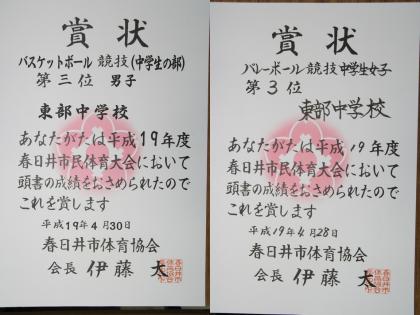 賞状
バスケットボール 競技(中学生の部)
第三位 男子
東部中学校
あなたがたは平成19年度
春日井市民体育大会において
頭書の成績をおさめられたので
これを賞します
平成19年4月30日
春日井市体育協会
会長 伊藤 太
賞状
バレーボール競技中学生女子
第3位
東部中学校
あなたがたは平成19年度
春日井市民体育大会において
頭書の成績をおさめられたので
これを賞します
平成19年4月28日
春日井市体育協会
会長 伊藤 太